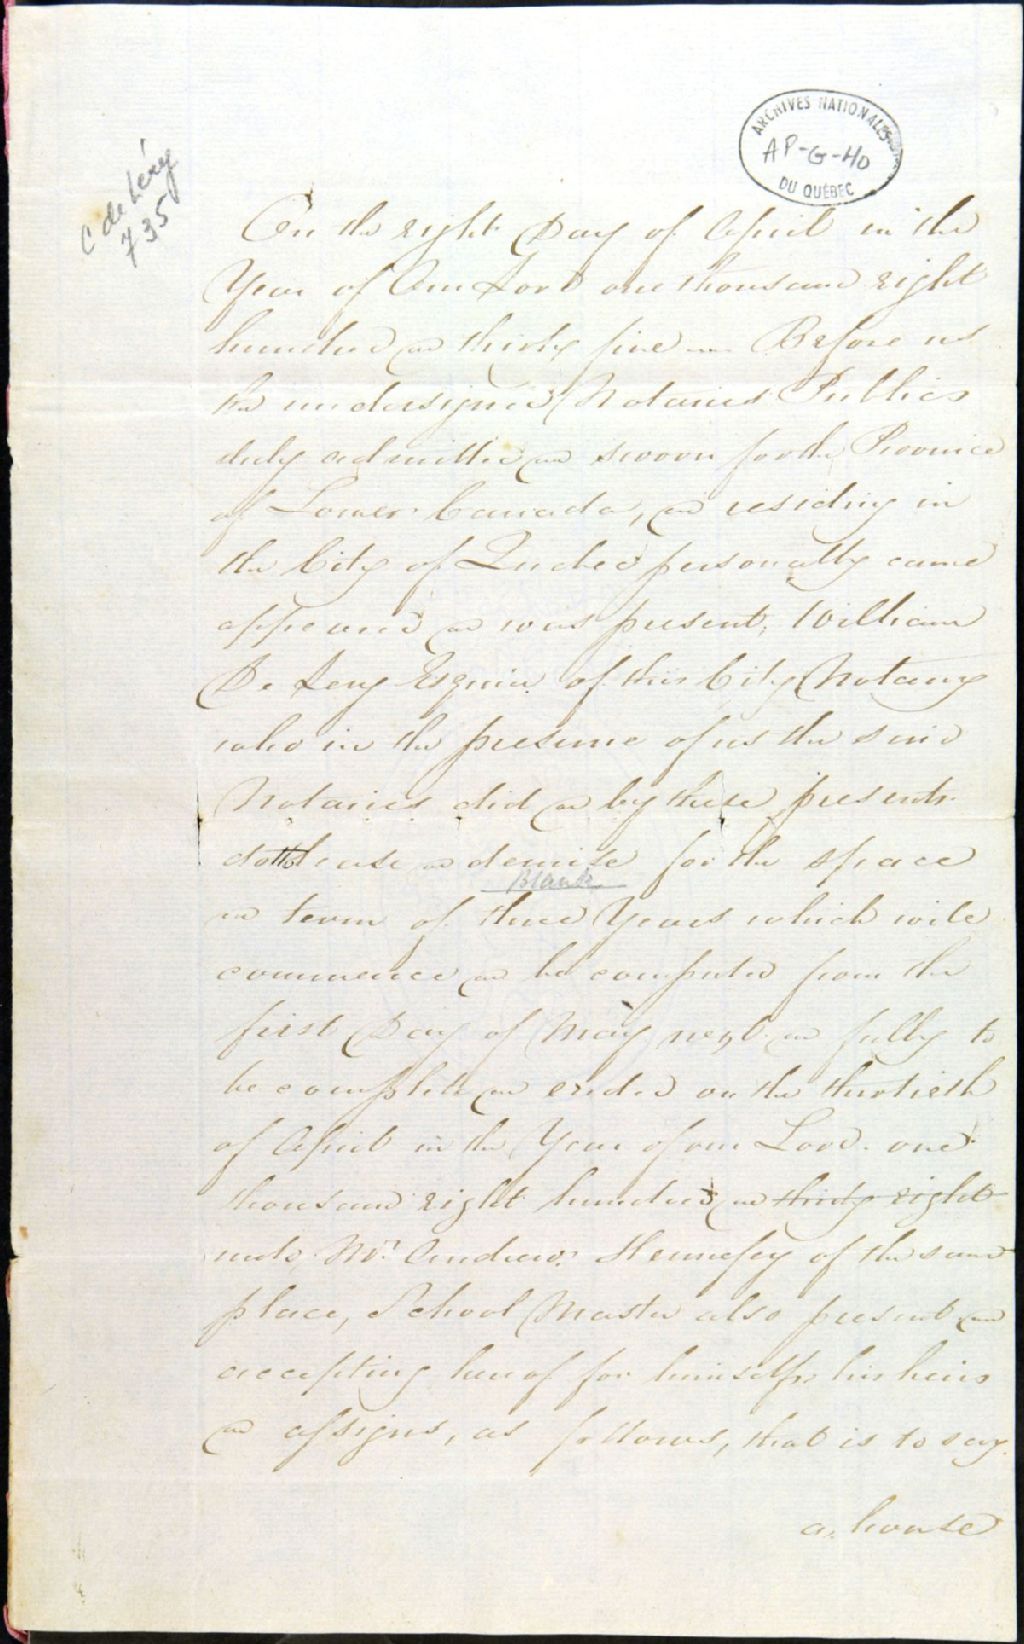 ARCHIVES NATIONALES
AP-G-40
DU QUÉBEC
C de Léry
735
On the eight Day of April in the
Year of Our Lord one thousand eight
hundred and thirty five — Before us
the undersigned Notaries Public
duly admitted and sworn for the Province
of Lower Canada, and residing in
the City of Quebec personally came
appeared and was present, William
De Lery Esquire of this City Notary
who in the presence of us the said
Notaries did and by these presents
doth lease and demise for the space
Blank
and term of three Years which will
commence and be computed from the
first Day of May next and fully to
be complete and ended on the thirtieth
of April in the Year of our Lord one
thousand eight hundred and thirty eight
unto Mr. Andrew Hennesey of the same
place, School Master also present and
accepting hereof for himself, his heirs
and assigns, as follows, that is to say
a house